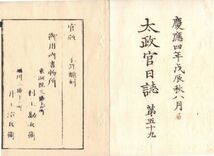 慶應四年戊辰秋八月
太政官日誌 第五十九
官版 不許翻刻
御用御書物所
村上勘兵衛
井上治兵衛